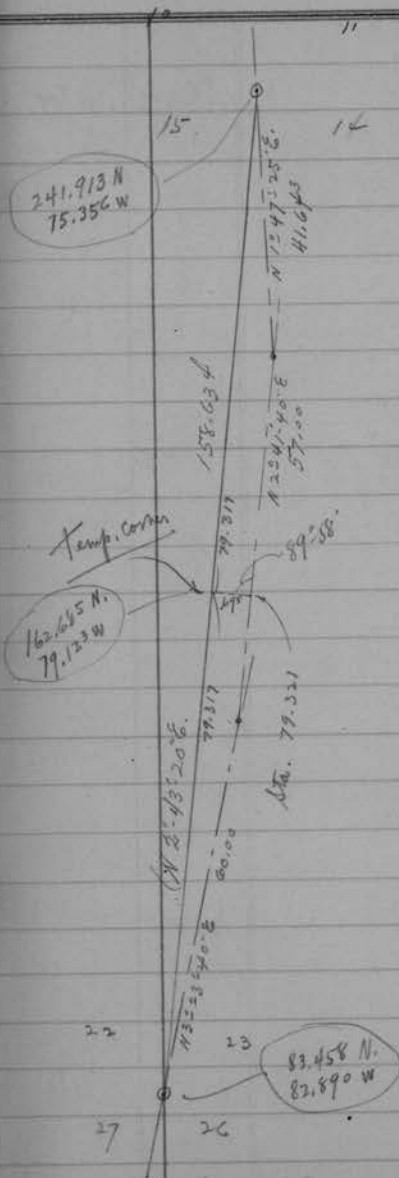 10
11
15.
14
241.913 N
75.356 W
N 1°-47'-25" E.
41.643
158.634
N 2°-41'-40" E
57.00
Temp. corner
79.317
89°-58'
.695
162.685 N.
79.123 W
79.317
Sta. 79.321
(N 2°-43'-20" E.
60.00
N 3°-23'-40" E
22
23
83.458 N.
82.890 W
27
26